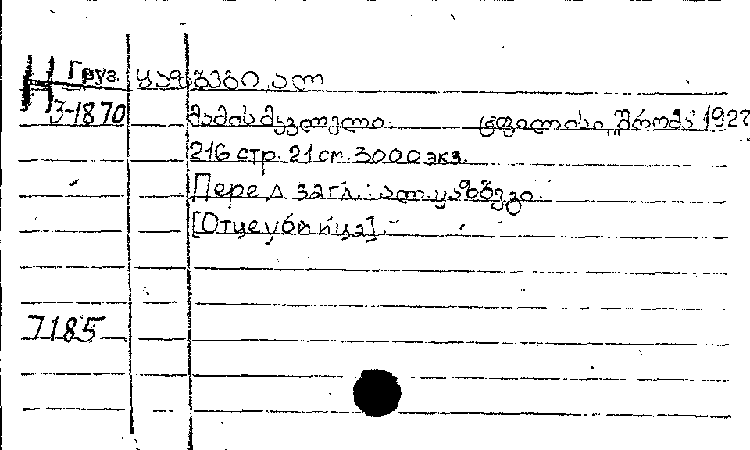 Груз. ყაზბეგი, ალ
3-1870 მამის მკვლელი. ტფილისი, შრომა 1927
216 стр. 21 см. 3000 экз.
Перед загл.: ალ. ყაზბეგი.
[Отцеубийца].
7185